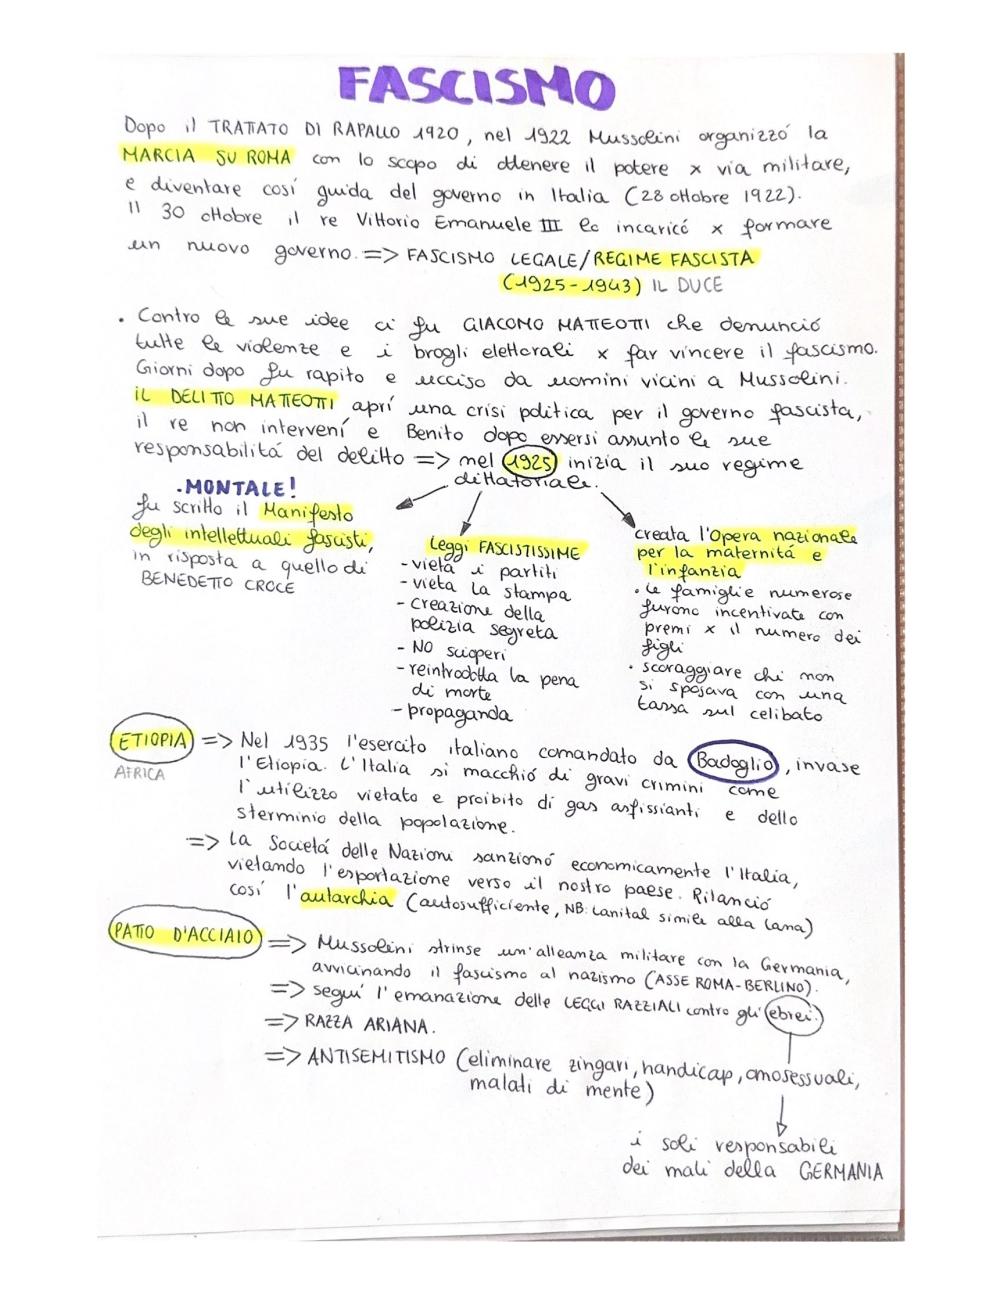 FASCISMO
Dopo il TRATTATO DI RAPALLO 1920, nel 1922 Mussolini organizzó la
MARCIA SU ROMA con lo scopo di ottenere il potere x via militare,
e diventare cosí guida del governo in Italia (28 ottobre 1922).
Il 30 ottobre il re Vittorio Emanuele III lo incaricó x formare
un nuovo governo. => FASCISMO LEGALE/REGIME FASCISTA
(1925-1943) IL DUCE
• Contro le sue idee ci fu GIACOMO MATTEOTTI che denunció
tutte le violenze e i brogli elettorali x far vincere il fascismo.
Giorni dopo fu rapito e ucciso da uomini vicini a Mussolini.
IL DELITTO MATTEOTTI aprí una crisi politica per il governo fascista,
il re non intervení e Benito dopo essersi assunto le sue
responsabilitá del delitto => nel 1925 inizia il suo regime
dittatoriale.
.MONTALE!
fu scritto il Manifesto
degli intellettuali fascisti,
in risposta a quello di
BENEDETTO CROCE
Leggi FASCISTISSIME
- vieta i partiti
- vieta la stampa
- creazione della
polizia segreta
- NO scioperi
- reintrodotta la pena
di morte
- propaganda
creata l'Opera nazionale
per la maternitá e
l'infanzia
• le famiglie numerose
furono incentivate con
premi x il numero dei
figli
• scoraggiare chi non
si sposava con una
tassa sul celibato
ETIOPIA => Nel 1935 l'esercito italiano comandato da Badoglio, invase
AFRICA l'Etiopia. L'Italia si macchió di gravi crimini come
l'utilizzo vietato e proibito di gas asfissianti e dello
sterminio della popolazione.
=> La Societá delle Nazioni sanzionó economicamente l'Italia,
vietando l'esportazione verso il nostro paese. Rilanció
cosí l'autarchia (autosufficiente, NB: Lanital simile alla lana)
PATTO D'ACCIAIO => Mussolini strinse un'alleanza militare con la Germania,
avvicinando il fascismo al nazismo (ASSE ROMA-BERLINO).
=> seguí l'emanazione delle LEGGI RAZZIALI contro gli ebrei.
=> RAZZA ARIANA.
=> ANTISEMITISMO (eliminare zingari, handicap, omosessuali,
malati di mente)
i soli responsabili
dei mali della GERMANIA